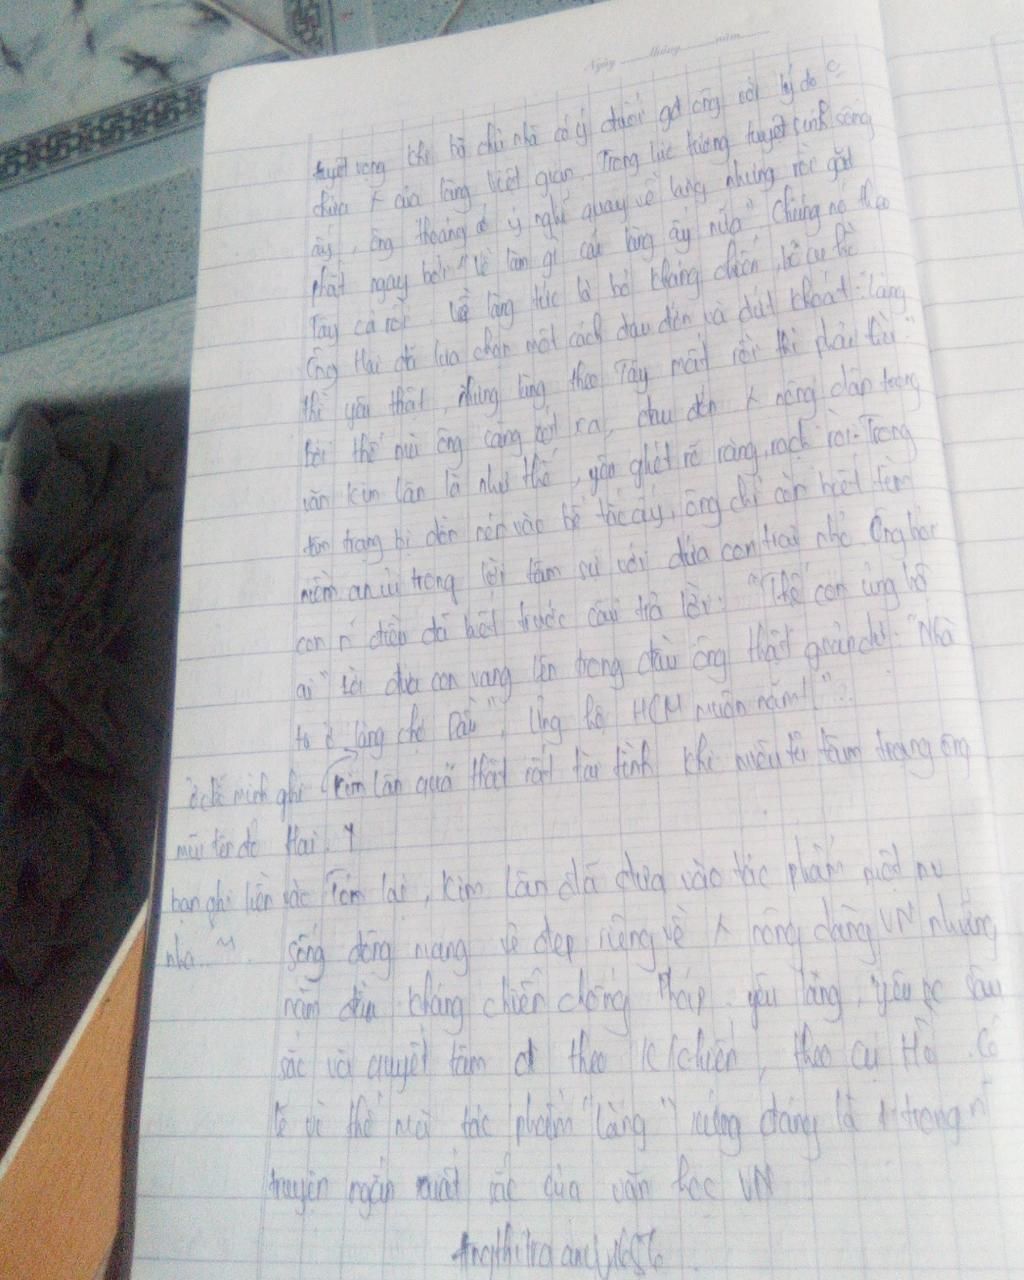 Ngày tháng năm
tuyệt vọng khi bà chủ nhà có ý đuổi gđ ông với lý do k
chứa λ của làng việt gian. Trong lúc tưởng tuyệt sinh sống
ấy, ông thoáng có ý nghĩ quay về làng nhưng rồi gạt
phắt ngay bởi "về làm gì cái làng ấy nữa". Chúng nó theo
Tây cả rồi về làng tức là bỏ kháng chiến, bỏ cụ Hồ
Ông Hai đã lựa chọn một cách đau đớn và dứt khoát: "làng
thì yêu thật, nhưng làng theo Tây mất rồi thì phải thù"
bởi thế mà ông càng xót xa, đau đớn λ nông dân trong
văn Kim Lân là như thế, yêu ghét rõ ràng, rạch ròi. Trong
tâm trạng bị dồn nén vào bế tắc ấy, ông chỉ còn biết tìm
niềm an ủi trong lời tâm sự với đứa con trai nhỏ. Ông hỏi
con n~ điều đã biết trước câu trả lời: "Thế con ủng hộ
ai" lời đứa con vang lên trong đầu ông thật giản dị: "Nhà
ta ở làng chợ Dầu", ủng hộ HCM muôn năm!"
ở chỗ mình ghi Kim Lân quả thật rất tài tình khi miêu tả tâm trạng ông
mũi tên đó Hai.
bạn ghi liền vào Tóm lại, Kim Lân đã đưa vào tác phẩm một
nha ~ sống động mang vẻ đẹp riêng về λ nông dâng VN những
năm đầu kháng chiến chống Pháp. yêu làng, yêu sâu
sắc và quyết tâm đi theo k/chiến, theo cụ Hồ. Có
lẽ vì thế mà tác phẩm "làng" xứng đáng là 1 trong n~
truyện ngắn xuất sắc của văn học VN